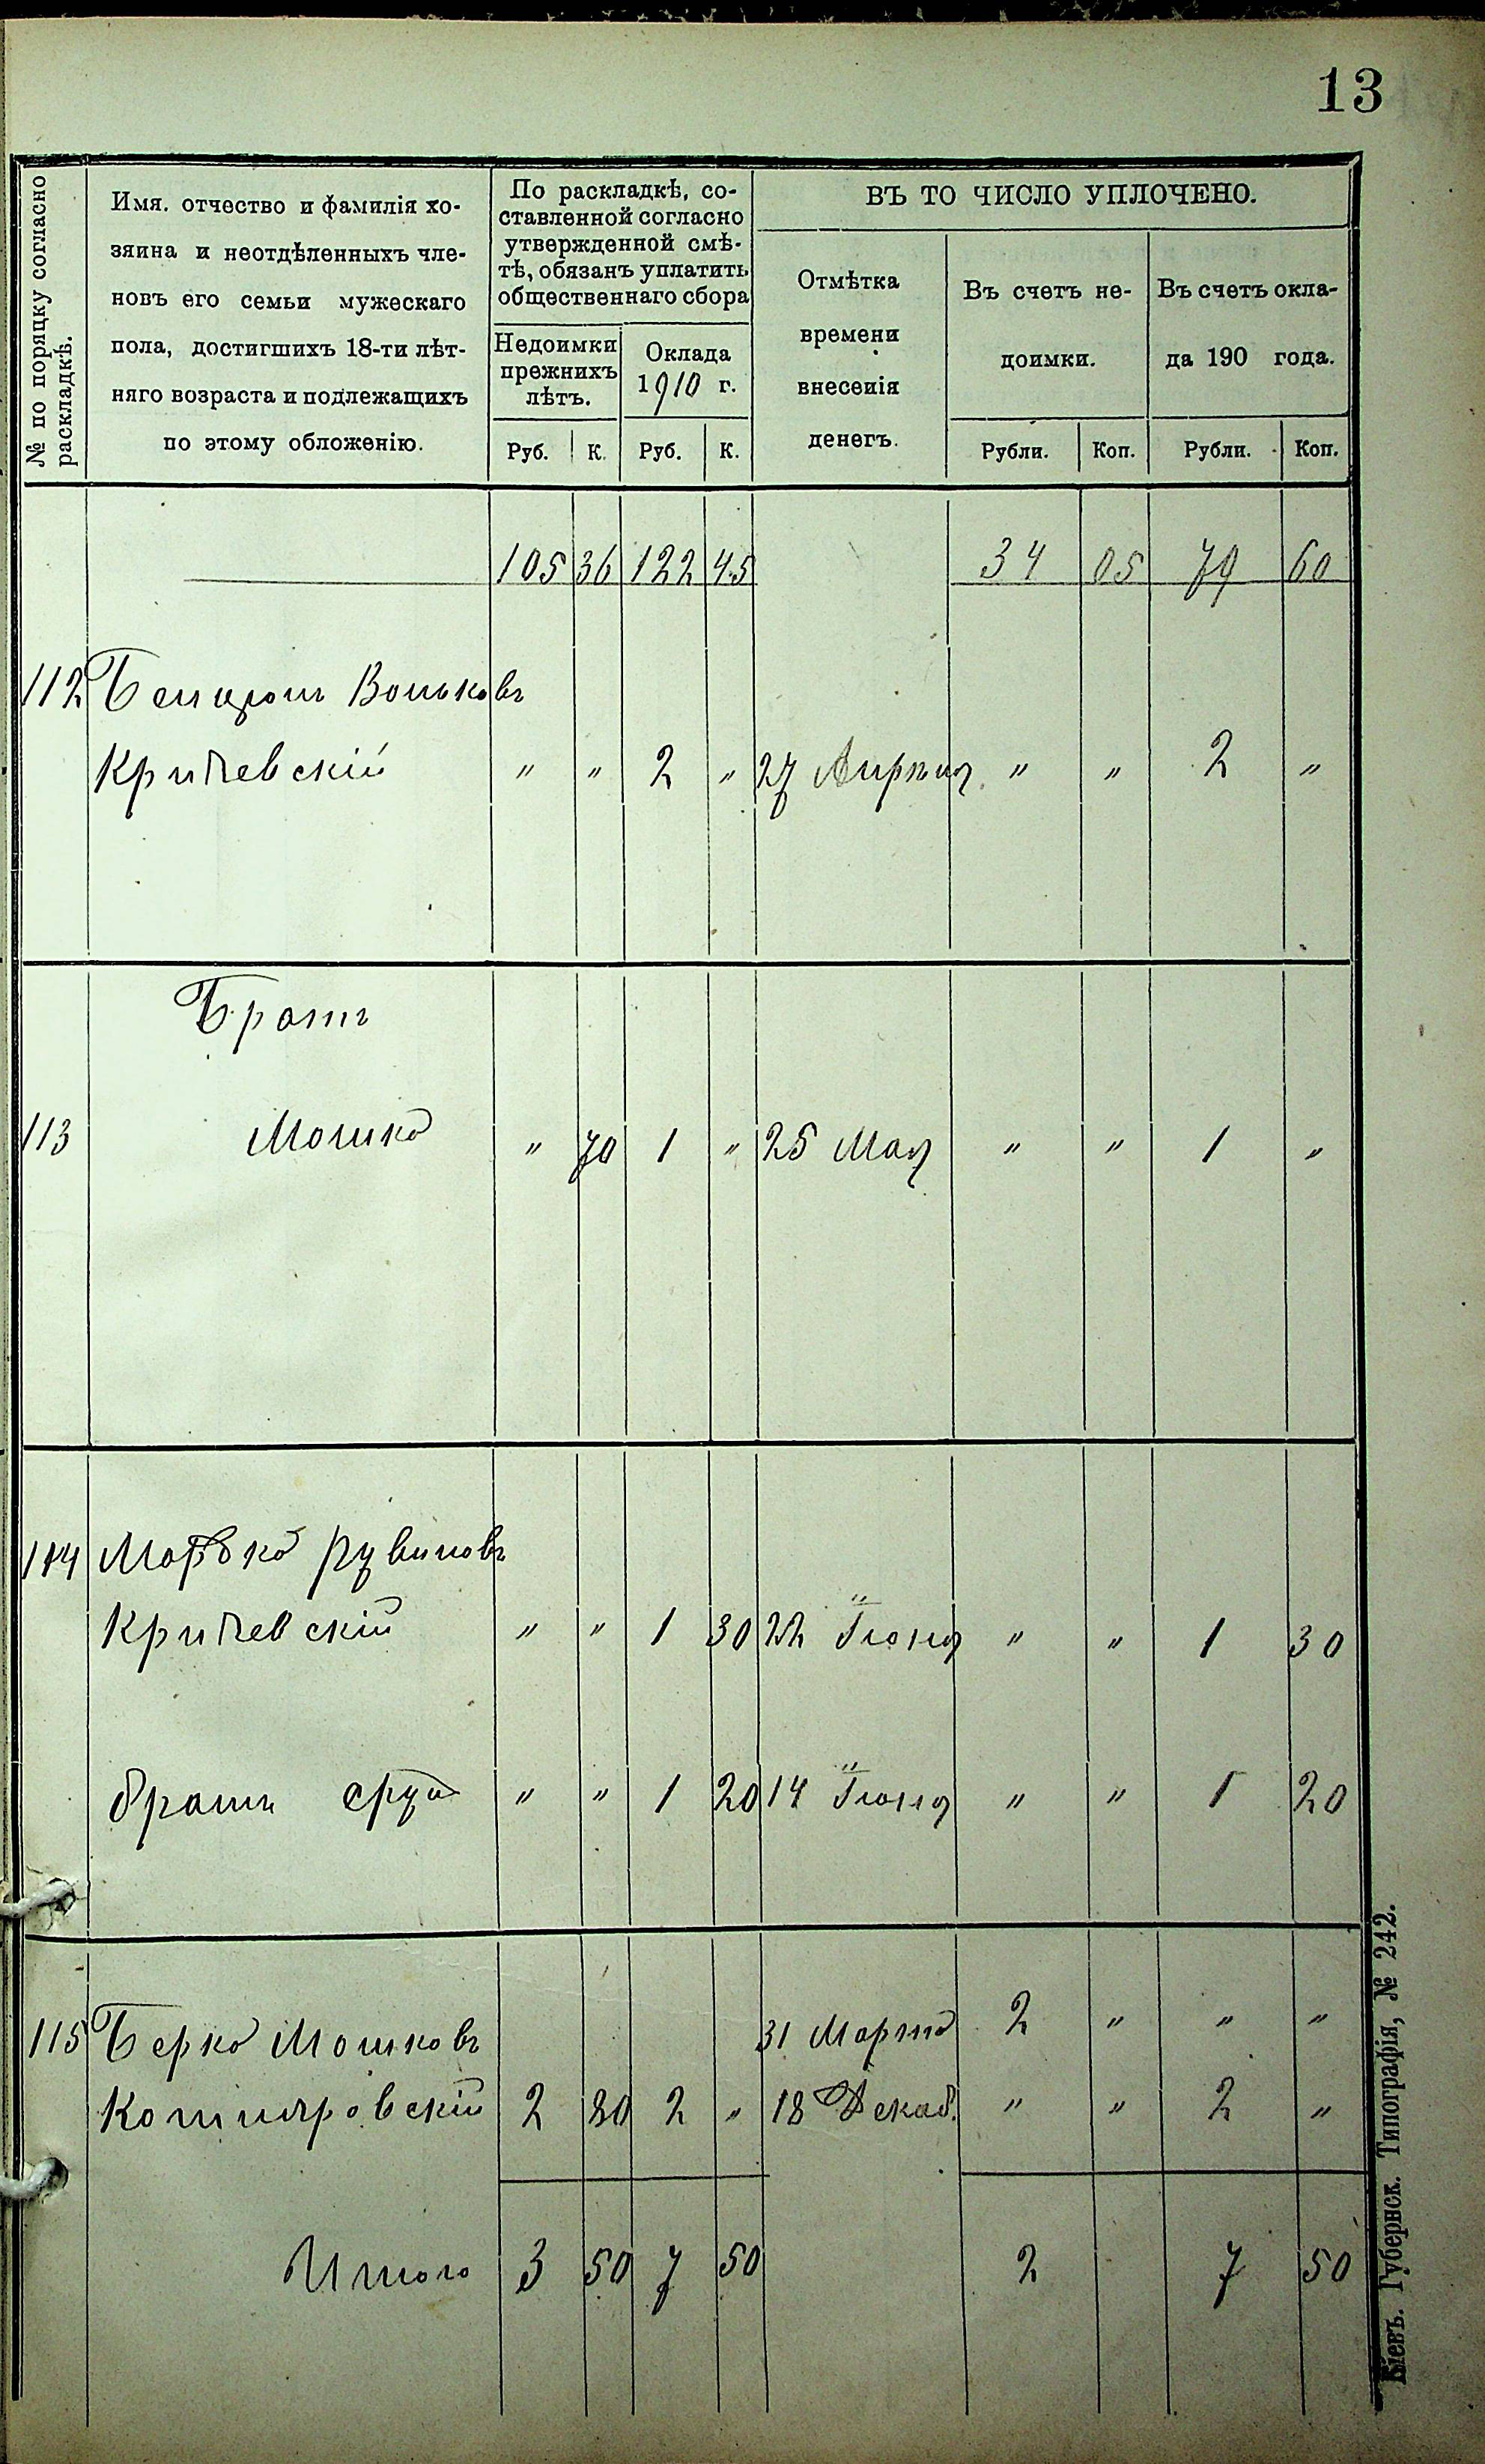 13
№ по порядку согласно
раскладкѣ.
Имя. отчество и фамилія хо-
зяина и неотдѣленныхъ чле-
новъ его семьи мужескаго
пола, достигшихъ 18-ти лѣт-
няго возраста и подлежащихъ
по этому обложенію.
По раскладкѣ, со-
ставленной согласно
утвержденной смѣ-
тѣ, обязанъ уплатить
общественнаго сбора
Недоимки
прежнихъ
лѣтъ.
Оклада
1910 г.
Руб. К. Руб. К.
ВЪ ТО ЧИСЛО УПЛОЧЕНО.
Отмѣтка
времени
внесенія
денегъ.
Въ счетъ не-
доимки.
Въ счетъ окла-
да 190 года.
Рубли. Коп. Рубли. Коп.
105 36 122 45 34 05 79 60
112 Вольковъ
Кричевскій " " 2 " 27 Апрѣля " " 2 "
Братъ
113 Мошко " 70 1 " 25 Мая " " 1 "
114 Мордко Рувиновъ
Кричевскій " " 1 30 22 Іюня " " 1 30
братъ Сруль " " 1 20 14 Іюня " " 1 20
115 Берко Мошковъ 31 Марта 2 " " "
Котляровскій 2 80 2 " 18 Декаб. " " 2 "
Итого 3 50 7 50 2 7 50
Кіевъ. Губернск. Типографія, № 242.